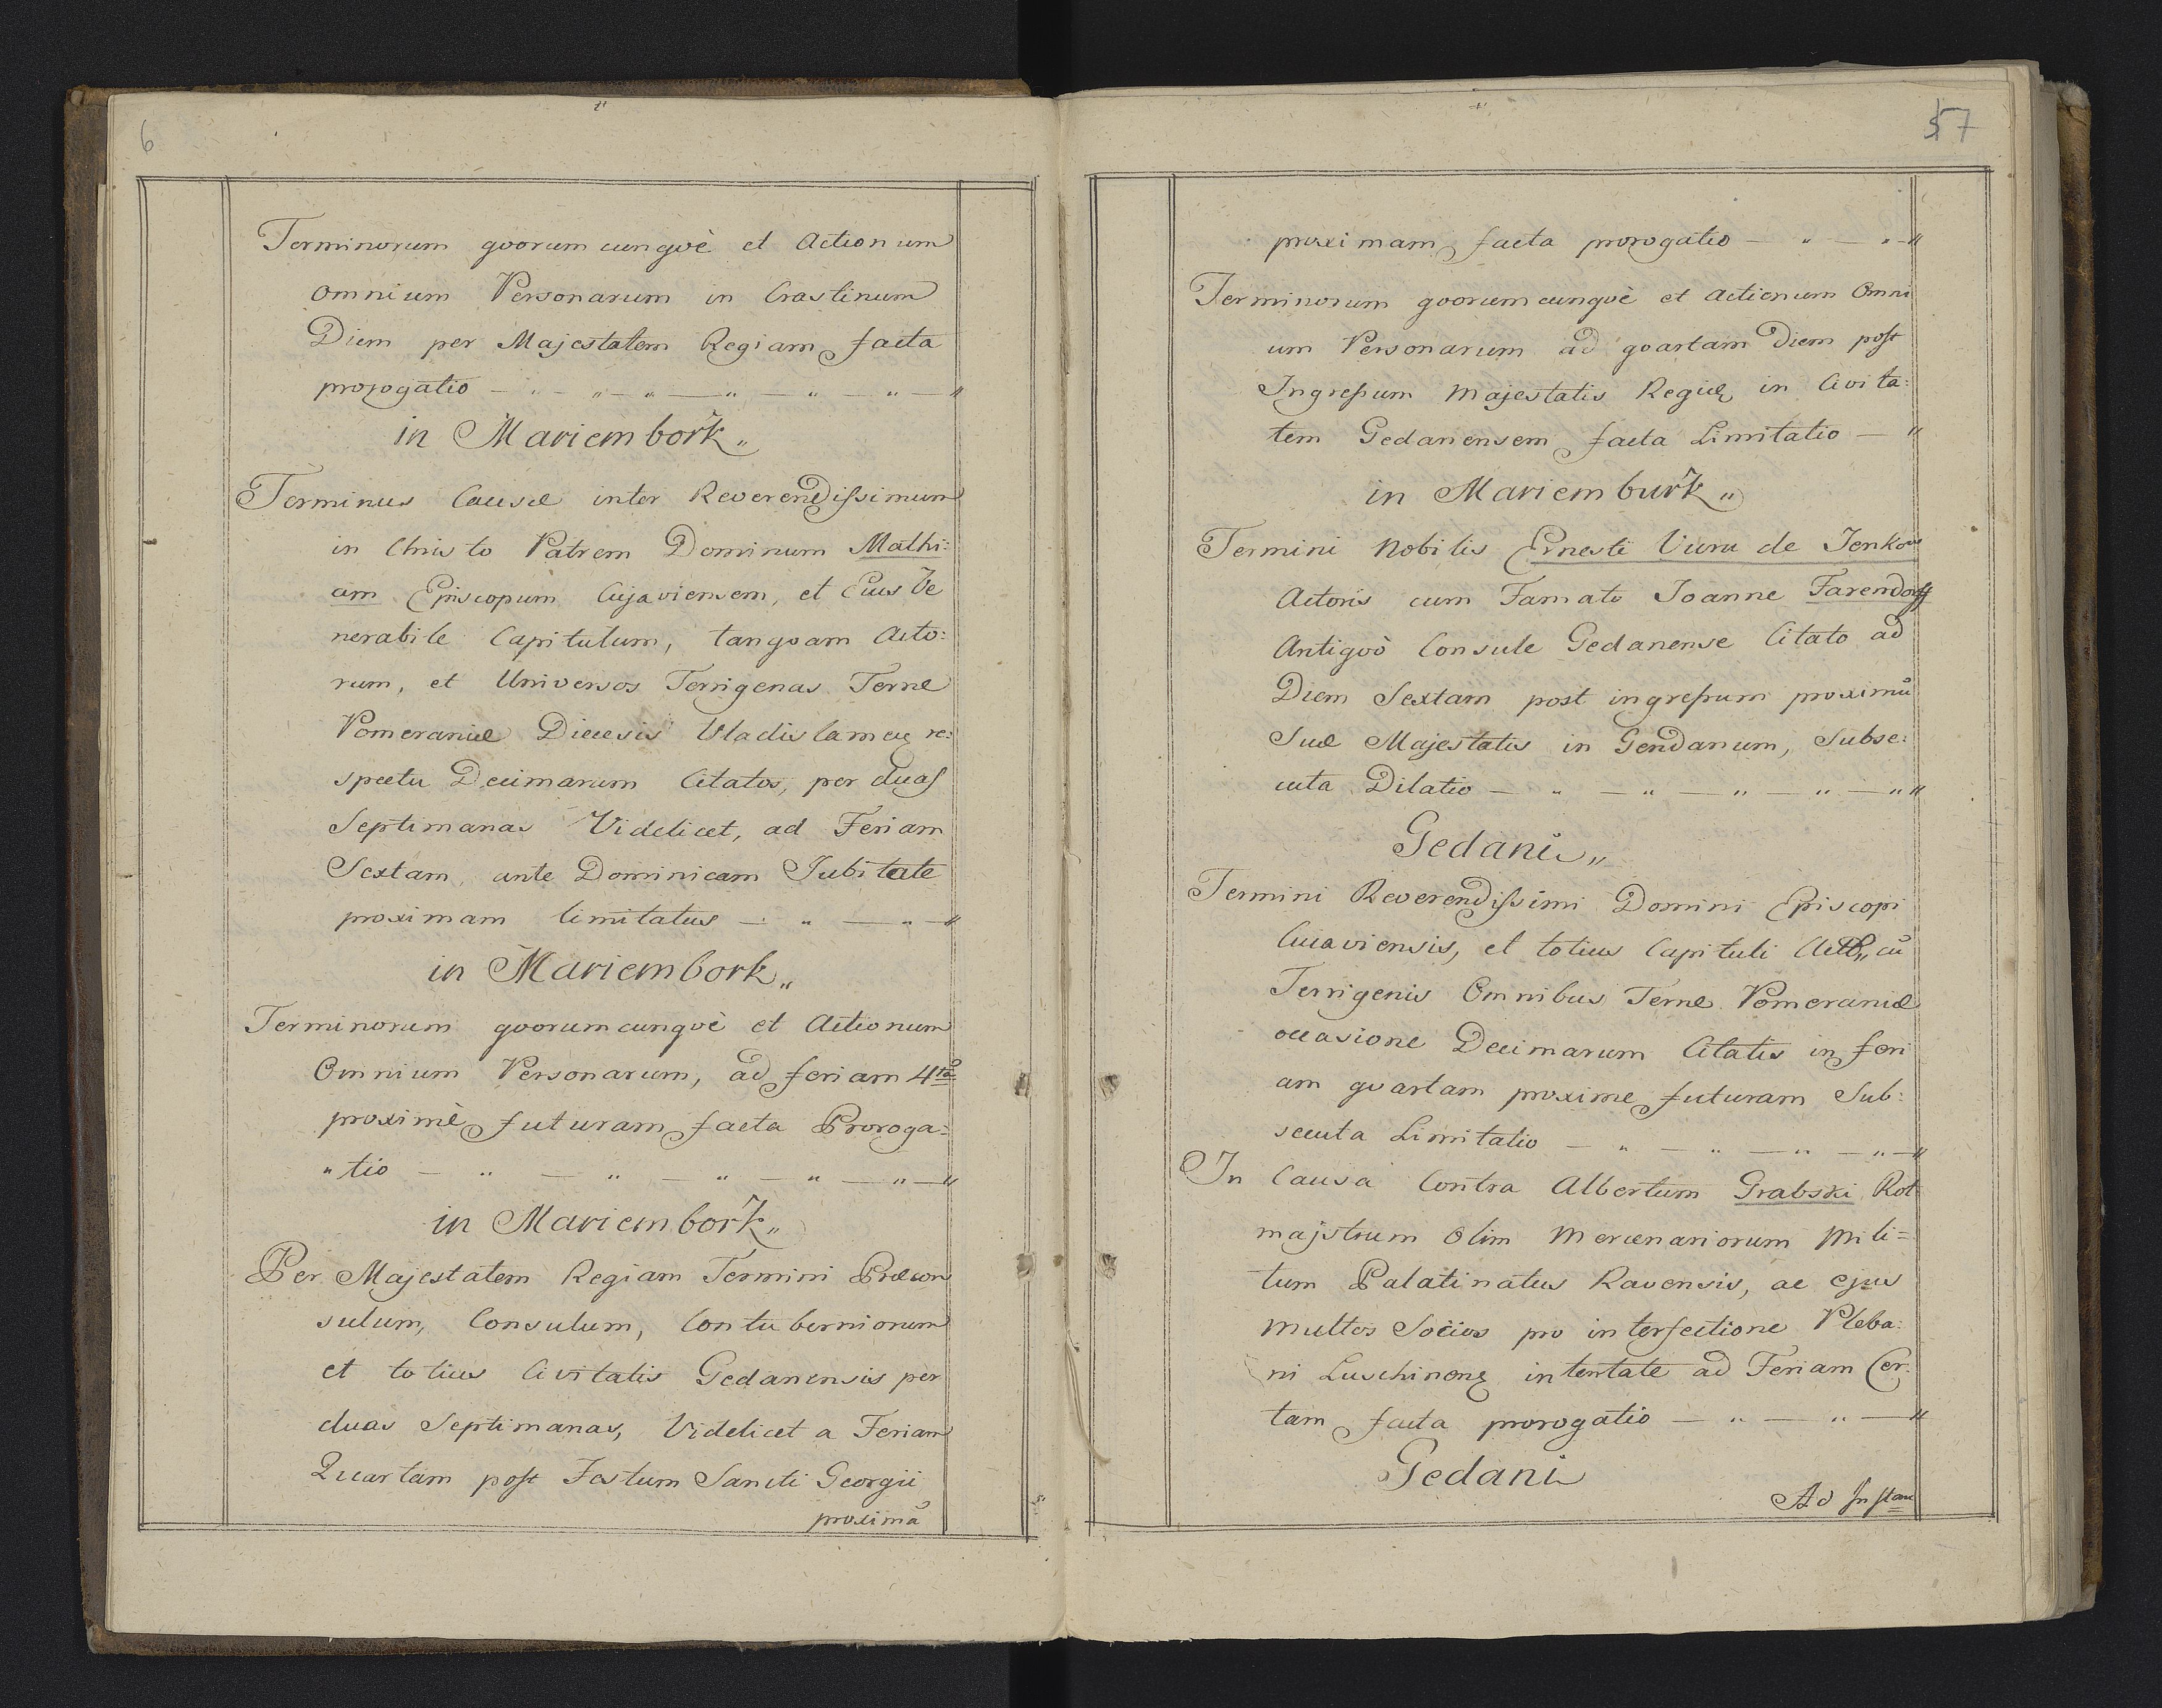 6
Terminorum qvorumcunqvè et Actionum
omnium Personarum in Crastinum
Diem per Majestatem Regiam facta
prorogatio — " — " — " — " — " — " — "
in Mariembork "
Terminus Causæ inter Reverendissimum
in Christo Patrem Dominum Mathi:
am Episcopum Cujaviensem, et Eius Ve
nerabile Capitulum, tanqvam Acto:
rum, et Universos Terrigenas Terræ
Pomeraniæ Diecesis Vladislamien re:
spectu Decimarum Citatos, per duas
Septimanas Videlicet, ad Feriam
Sextam, ante Dominicam Jubitate
proximam limitatus — " — " — "
in Mariembork "
Terminorum qvorumcunqvè et Actionum
Omnium Personarum, ad feriam 4tã
proximè futuram facta Proroga:
" tio — " — " — " — " — " — "
in Mariembork "
Per Majestatem Regiam Termini Præcon
sulum, Consulum, Contuberniorum
et totius Civitatis Gedanensis per
duas Septimanas, Videlicet a Feriam
Quartam post Festum Sancti Georgii
proximã
57
proximam facta prorogatio — " — " — "
Terminorum qvorumcunqvè et Actionum Omni
um Personarum ad qvartam Diem post
Ingressum Majestatis Regiæ in Civita:
tem Gedanensem facta Limitatio — "
in Mariemburk "
Termini Nobilis Ernesti Vuru de Jenkow
Actoris cum Famato Joanne Farendorff
Antiqvò Consule Gedanense Citato ad
Diem Sextam post ingressum proximũ
Suæ Majestatis in Gendanum, Subse:
cuta Dilatio — " — " — " — " — " "
Gedani "
Termini Reverendissimi Domini Episcopi
Cuiaviensis, et totius Capituli cũ
Terrigenis Omnibus Terræ Pomeraniæ
occasione Decimarum Citatis in feri
am qvartam proxime futuram Sub:
secuta Limitatio — " — " — " — " — "
In Causa Contra Albertum Grabski Rot
majstrum Olim Mercenariorum Mili=
tum Palatinatus Ravensis, ac ejus
multos Socios pro interfectione Pleba:
ni Luschinenę intentate ad Feriam Cer:
tam facta prorogatio — " — " — "
Gedani
Ad Instan